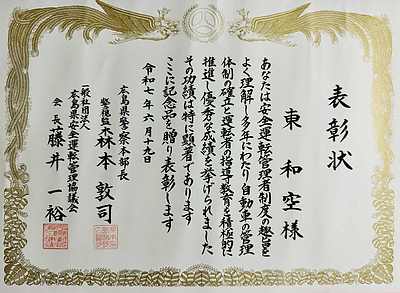 表彰状
東和空様
あなたは安全運転管理者制度の趣旨を
よく理解し多年にわたり自動車の管理
体制の確立と運転者の指導教育を積極的に
推進し優秀な成績を挙げられました
その功績は特に顕著であります
ここに記念品を贈り表彰します
令和七年六月十九日
広島県警察本部長
警視監 森本敦司
一般社団法人
広島県安全運転管理協議会
会長 藤井一裕